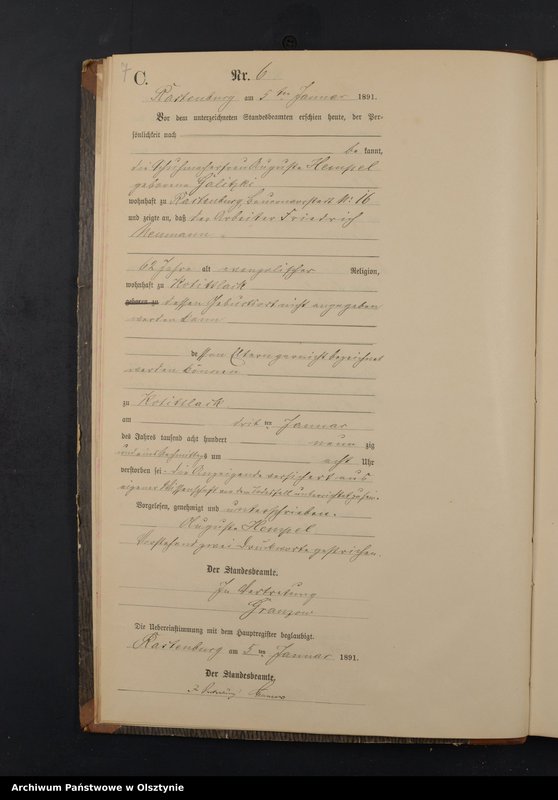 7
C.
Nr. 6
Rastenburg am 5 ten Januar 1891.
Vor dem unterzeichneten Standesbeamten erschien heute, der Per-
sönlichkeit nach
be kannt,
die Schuhmacherfrau Auguste Hempel
geborene Golitzki
wohnhaft zu Rastenburg, N: 16
und zeigte an, daß der Arbeiter Friedrich
Neumann
62 Jahre alt evangelischer Religion,
wohnhaft zu Kotittlack
geboren zu dessen Geburtsort nicht angegeben
werden kann
dessen Eltern garnicht bezeichnet
werden können
zu Kotittlack
am ten Januar
des Jahres tausend acht hundert neun zig
und eins Vormittags um acht Uhr
verstorben sei. Die Anzeigende versichert aus
eigener Wissenschaft von dem Todesfall unterrichtet zu sein.
Vorgelesen, genehmigt und unterschrieben.
Auguste Hempel
Vorstehend zwei Druckworte gestrichen.
Der Standesbeamte.
In Vertretung
Granzow
Die Uebereinstimmung mit dem Hauptregister beglaubigt.
Rastenburg am 5 ten Januar 1891.
Der Standesbeamte.
In Vertretung Granzow
Archiwum Państwowe w Olsztynie